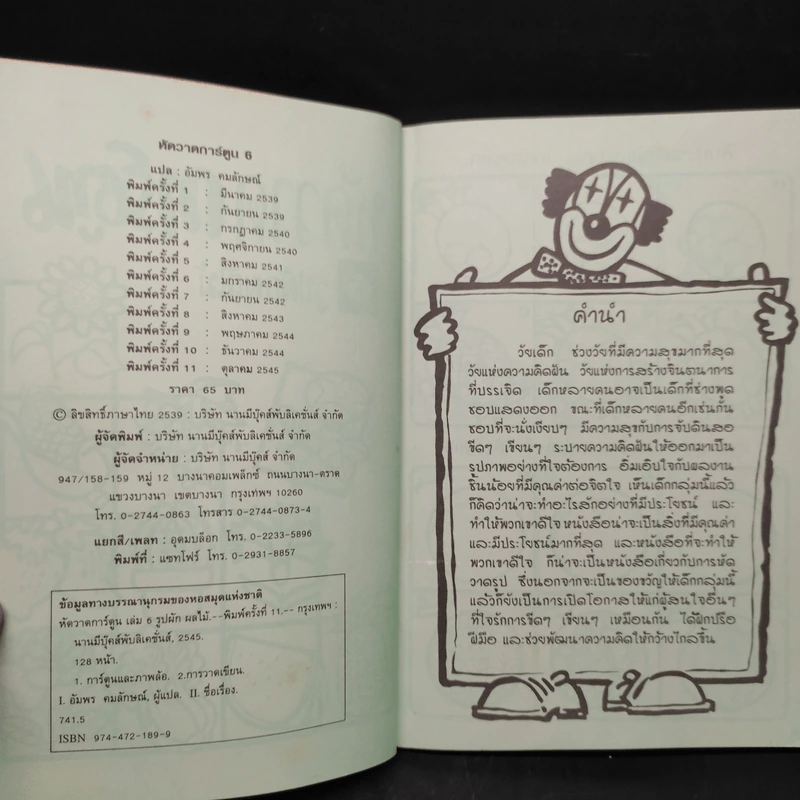 หัดวาดการ์ตูน 6
แปล : อัมพร คมลักษณ์
พิมพ์ครั้งที่ 1 : มีนาคม 2539
พิมพ์ครั้งที่ 2 : กันยายน 2539
พิมพ์ครั้งที่ 3 : กรกฎาคม 2540
พิมพ์ครั้งที่ 4 : พฤศจิกายน 2540
พิมพ์ครั้งที่ 5 : สิงหาคม 2541
พิมพ์ครั้งที่ 6 : มกราคม 2542
พิมพ์ครั้งที่ 7 : กันยายน 2542
พิมพ์ครั้งที่ 8 : สิงหาคม 2543
พิมพ์ครั้งที่ 9 : พฤษภาคม 2544
พิมพ์ครั้งที่ 10 : ธันวาคม 2544
พิมพ์ครั้งที่ 11 : ตุลาคม 2545
ราคา 65 บาท
© ลิขสิทธิ์ภาษาไทย 2539 : บริษัท นานมีบุ๊คส์พับลิเคชั่นส์ จำกัด
ผู้จัดพิมพ์ : บริษัท นานมีบุ๊คส์พับลิเคชั่นส์ จำกัด
ผู้จัดจำหน่าย : บริษัท นานมีบุ๊คส์ จำกัด
947/158-159 หมู่ 12 บางนาคอมเพล็กซ์ ถนนบางนา-ตราด
แขวงบางนา เขตบางนา กรุงเทพฯ 10260
โทร. 0-2744-0863 โทรสาร 0-2744-0873-4
แยกสี/เพลท : อุดมบล็อก โทร. 0-2233-5896
พิมพ์ที่ : แซทโฟร์ โทร. 0-2931-8857
ข้อมูลทางบรรณานุกรมของหอสมุดแห่งชาติ
หัดวาดการ์ตูน เล่ม 6 รูปผัก ผลไม้.--พิมพ์ครั้งที่ 11.-- กรุงเทพฯ :
นานมีบุ๊คส์พับลิเคชั่นส์, 2545.
128 หน้า.
1. การ์ตูนและภาพล้อ. 2.การวาดเขียน.
I. อัมพร คมลักษณ์, ผู้แปล. II. ชื่อเรื่อง.
741.5
ISBN 974-472-189-9
คำนำ
วัยเด็ก ช่วงวัยที่มีความสุขมากที่สุด
วัยแห่งความคิดฝัน วัยแห่งการสร้างจินตนาการ
ที่บรรเจิด เด็กหลายคนอาจเป็นเด็กที่ช่างพูด
ชอบแสดงออก ขณะที่เด็กหลายคนอีกเช่นกัน
ชอบที่จะนั่งเงียบๆ มีความสุขกับการจับดินสอ
ขีดๆ เขียนๆ ระบายความคิดฝันให้ออกมาเป็น
รูปภาพอย่างที่ใจต้องการ อิ่มเอิบใจกับผลงาน
ชิ้นน้อยที่มีคุณค่าต่อจิตใจ เห็นเด็กกลุ่มนี้แล้ว
ก็คิดว่าน่าจะทำอะไรสักอย่างที่มีประโยชน์ และ
ทำให้พวกเขาดีใจ หนังสือน่าจะเป็นสิ่งที่มีคุณค่า
และมีประโยชน์มากที่สุด และหนังสือที่จะทำให้
พวกเขาดีใจ ก็น่าจะเป็นหนังสือเกี่ยวกับการหัด
วาดรูป ซึ่งนอกจากจะเป็นของขวัญให้เด็กกลุ่มนี้
แล้วก็ยังเป็นการเปิดโอกาสให้แก่ผู้สนใจอื่นๆ
ที่ใจรักการขีดๆ เขียนๆ เหมือนกัน ได้ฝึกปรือ
ฝีมือ และช่วยพัฒนาความคิดให้กว้างไกลขึ้น